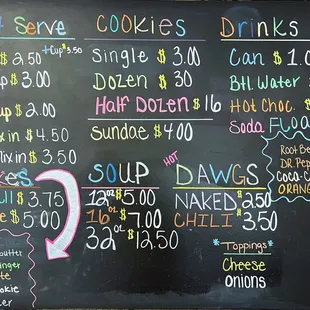 Serve
$2.50
+Cup $3.50
$3.00
up $2.00
$4.50
$3.50
$3.75
$5.00
COOKIES
Single $3.00
Dozen $30
Half Dozen $16
Sundae $4.00
Drinks
Can $1.0
Btl. Water
Hot Choc. $
Soda FLOA
Root Be
DR. Pep
Coca-C
ORANG
SOUP
12oz $5.00
16oz $7.00
32oz $12.50
HOT
DAWGS
NAKED $2.50
CHILI $3.50
*Toppings*
Cheese
onions